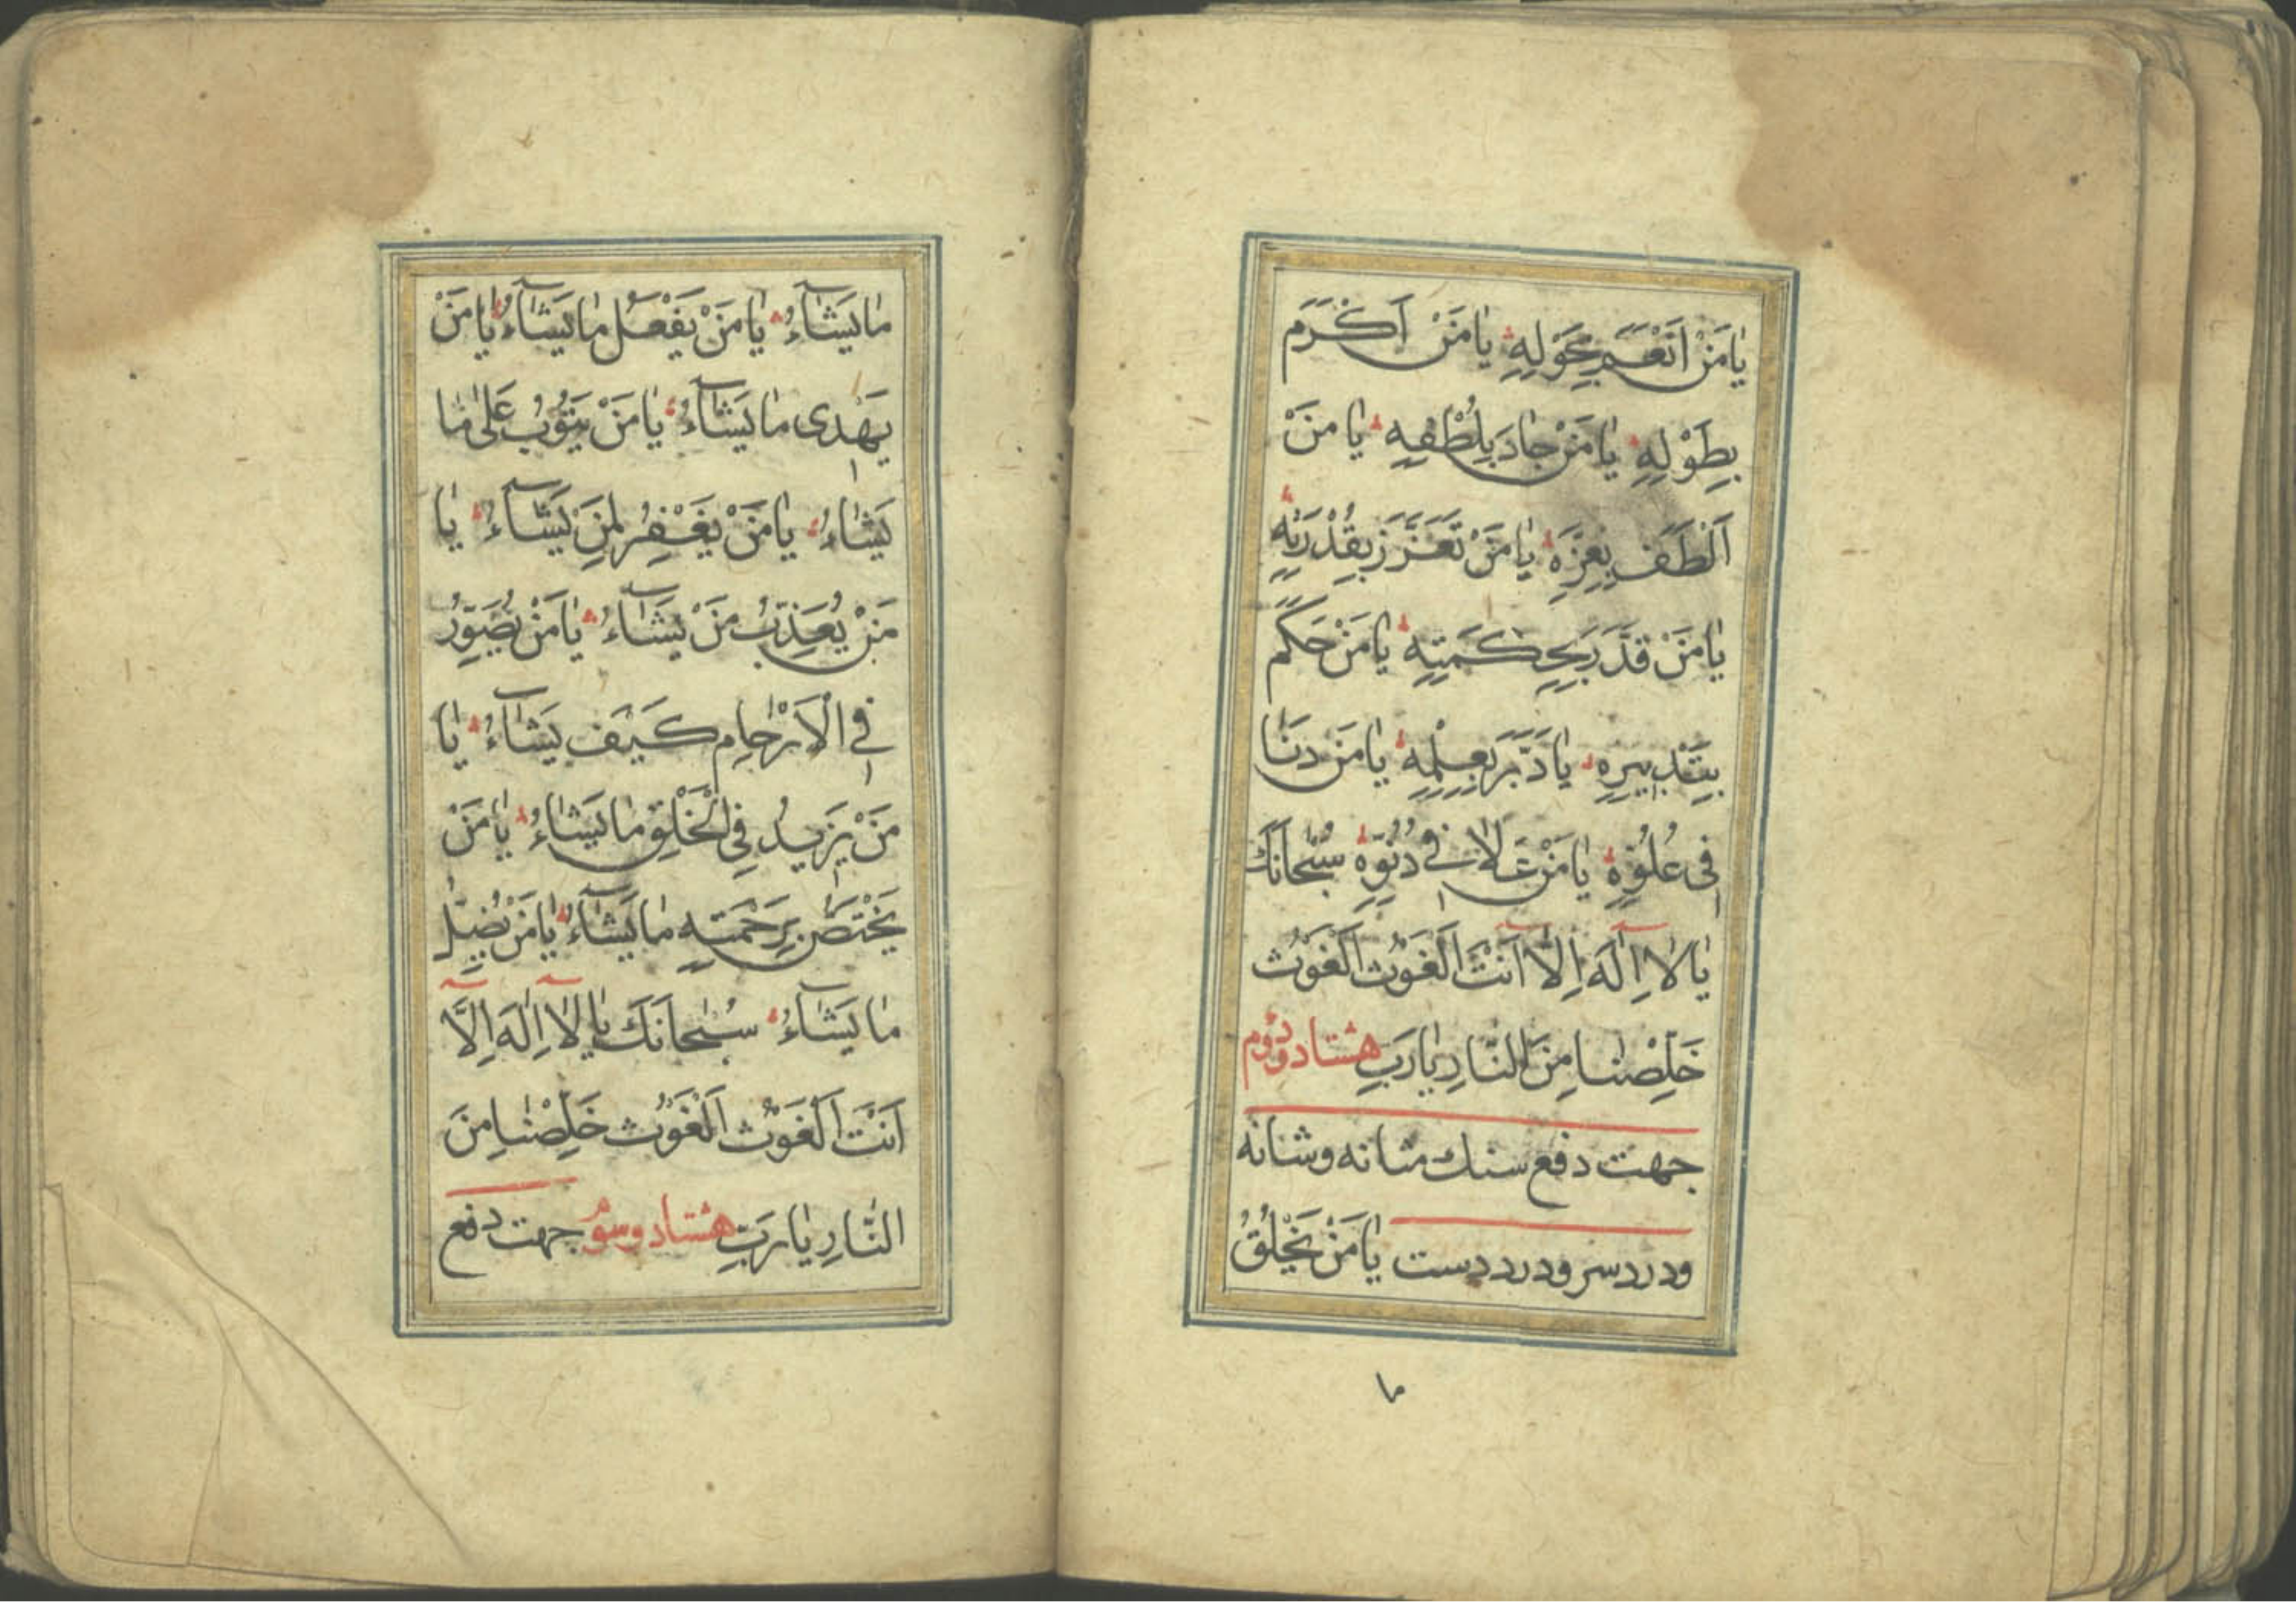 يٰا مَنْ اَنْعَمَ بِحَوْلِهِ يٰا مَنْ اَكْرَمَ
بِطَوْلِهِ يٰا مَنْ جٰادَ بِلُطْفِهِ يٰا مَنْ
اَلْطَفَ بِعِزَّهِ يٰا مَنْ تَعَزَّزَ بِقُدْرَتِهِ
يٰا مَنْ قَدَّرَ بِحِكْمَتِهِ يٰا مَنْ حَكَمَ
بِتَدْبِيرِهِ يٰا دَبَّرَ بِعِلْمِهِ يٰا مَنْ دَنٰا
فى عُلُوِّهِ يٰا مَنْ عَلاٰ فى دُنُوِّهِ سُبْحٰانَكَ
يٰا لاٰ اِلٰهَ اِلاّٰ اَنْتَ اَلْغَوْثَ اَلْغَوْثَ
خَلِّصْنٰا مِنَ النّٰارِ يٰا رَبِّ هشتاد و دوّم
جهت دفع سنك مثانه و شانه
و درد سر و درد دست يٰا مَنْ يَخْلُقُ
ما
مٰا يَشٰآءُ يٰا مَنْ يَفْعَلُ مٰا يَشٰآءُ يٰا مَنْ
يَهْدى مٰا يَشٰآءُ يٰا مَنْ يَتُوبُ عَلىٰ مٰا
يَشٰاءُ يٰا مَنْ يَغْفِرُ لِمَنْ يَشٰآءُ يٰا
مَنْ يُعَذِّبُ مَنْ يَشٰآءُ يٰا مَنْ يُصَوِّرُ
فى الْاَرْحٰامِ كَيْفَ يَشٰآءُ يٰا
مَنْ يَزيدُ فِى الْخَلْقِ مٰا يَشٰاءُ يٰا مَنْ
يَخْتَصُّ بِرَحْمَتِهِ مٰا يَشٰآءُ يٰا مَنْ يُضِلُّ
مٰا يَشٰآءُ سُبْحٰانَكَ يٰا لاٰ اِلٰهَ اِلَّا
اَنْتَ اَلْغَوْثَ اَلْغَوْثَ خَلِّصْنٰا مِنَ
النّٰارِ يٰا رَبِّ هشتاد و سوم جهت دفع